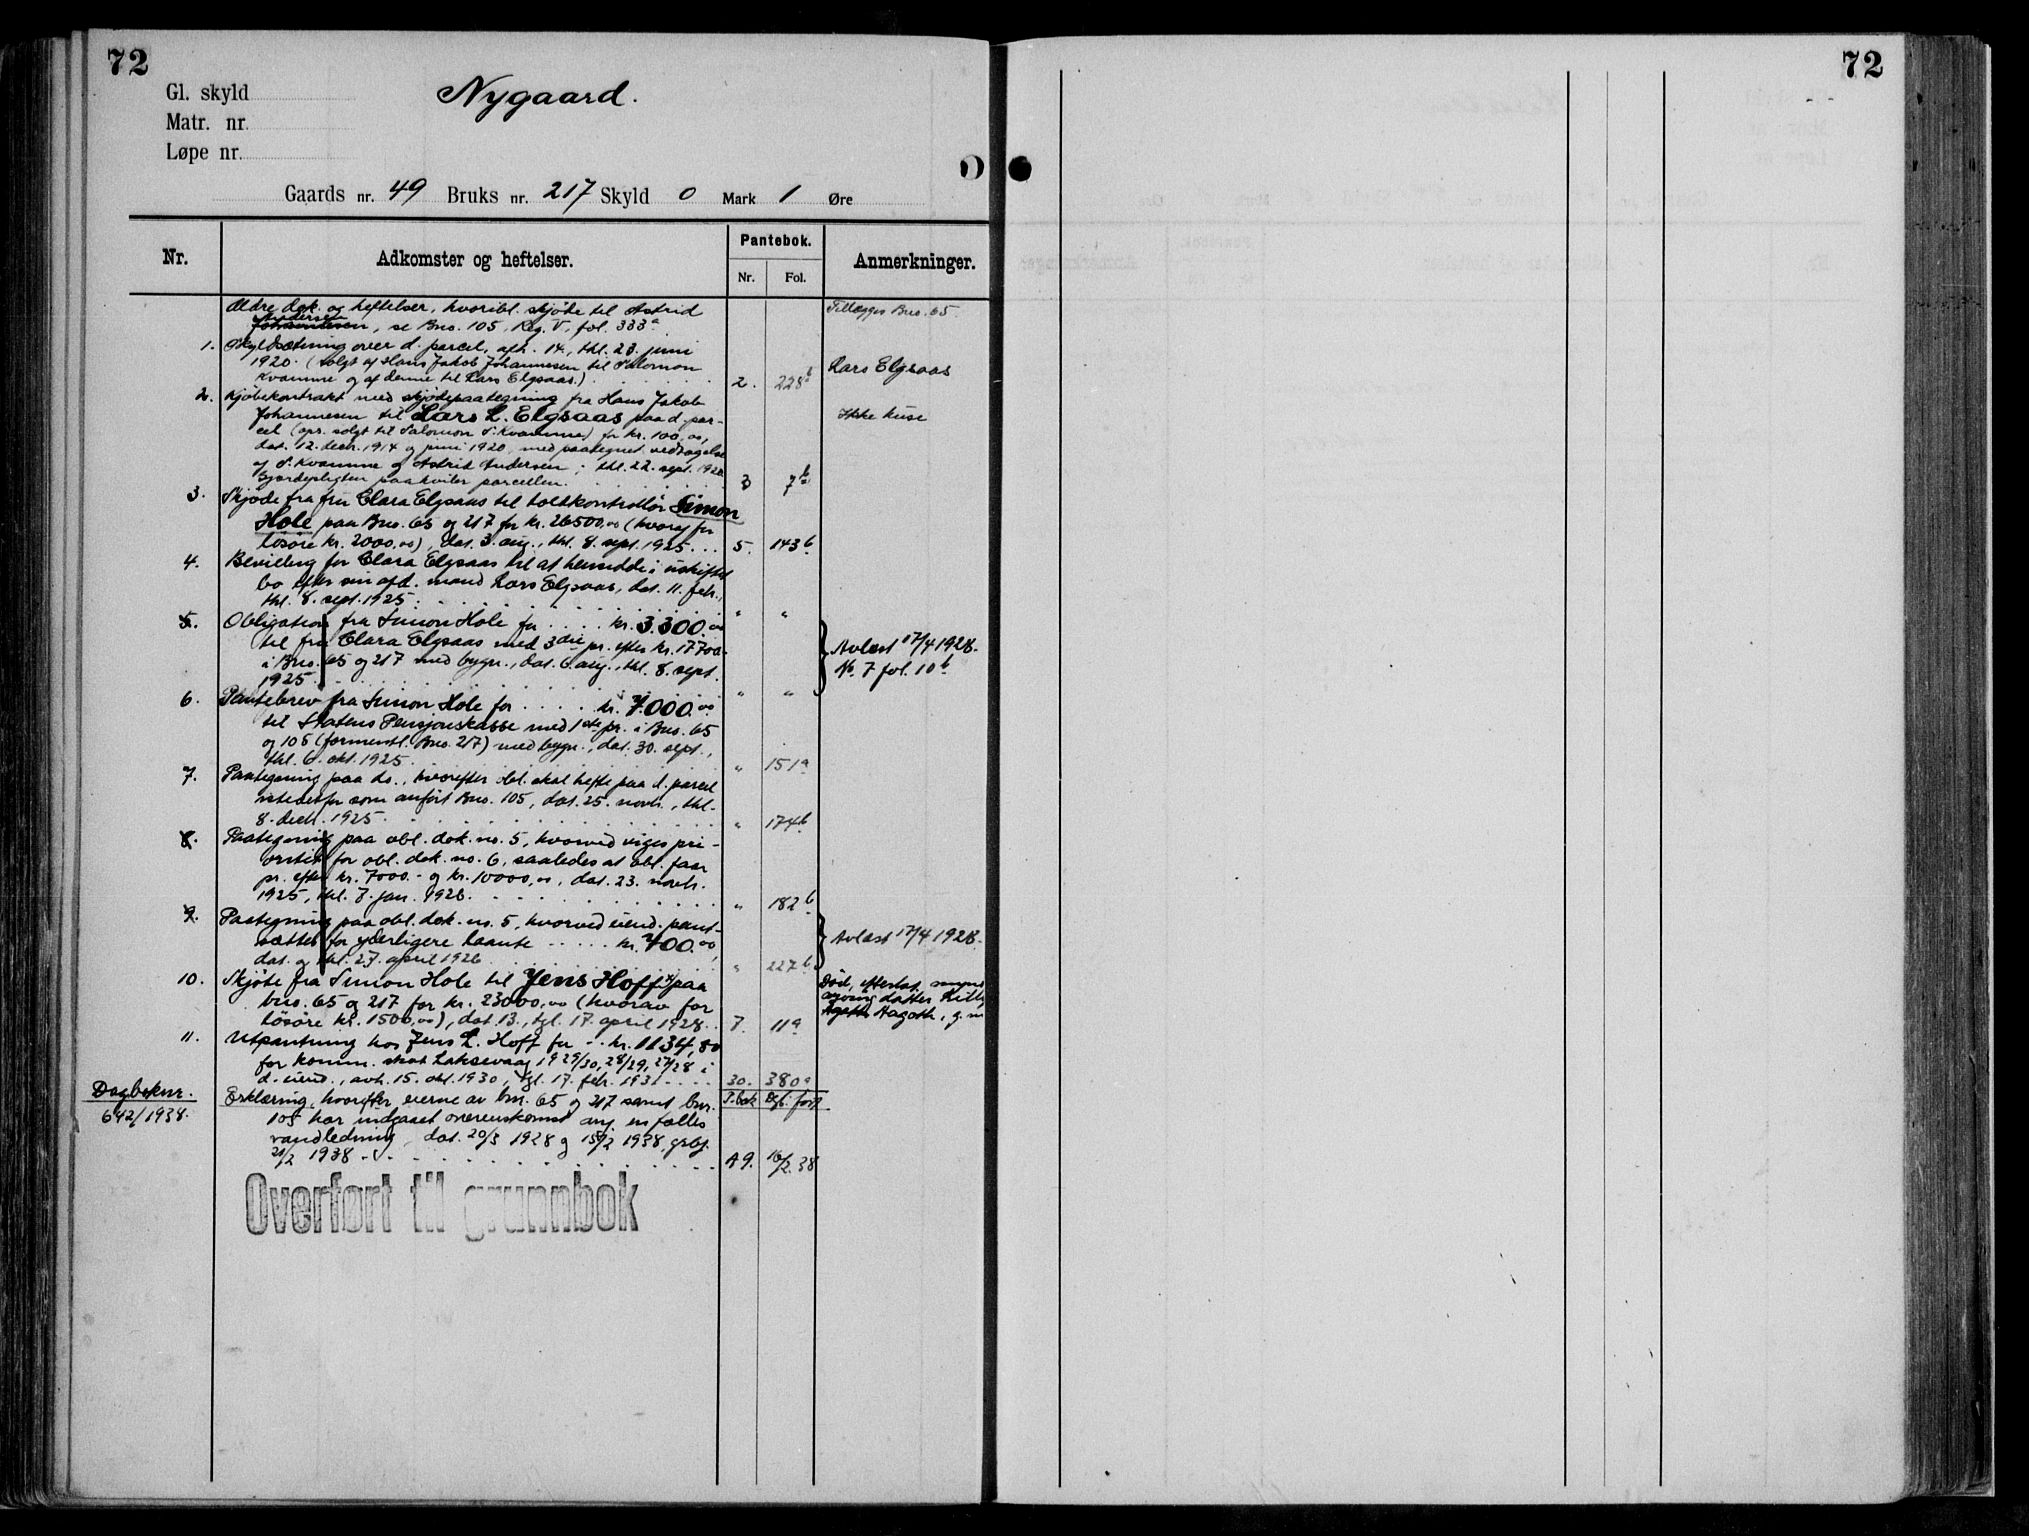 72
72
Gl. skyld
Nygaard.
Matr. nr.
Løpe nr.
Gaards nr. 49 Bruks nr. 217 Skyld 0 Mark 1 Øre
Nr.
Adkomster og heftelser.
Pantebok.
Nr. Fol.
Anmerkninger.
Ældre dok. og heftelser, hvoribl. skjøte til Astrid
Andersen
Johannesen, se Bno. 105, Reg. V, fol. 333a
Tillægges Bno. 65.
1. Skyldsætning over d. parcel, afh. 14., thl. 23. juni
1920. (solgt af Hans Jakob Johannesen til Salomon
Kvamme og af denne til Lars Elgsaas.) 2. 228b
Lars Elgsaas
2. Kjøbekontrakt med skjødepaategning fra Hans Jakob
Johannesen til Lars L. Elgsaas paa d. par-
cel (opr. solgt til Salomon S. Kvamme) for kr. 100,00,
dat. 12. decbr. 1914 og juni 1920, med paategnet vedtagelse
af S. Kvamme og Astrid Andersen; thl. 22. sept. 1920.
Gjærdepligten paahviler parcellen. 3 7b
Ikke huse
3. Skjøde fra fru Clara Elgsaas til toldkontrollør Simon
Hole paa Bno. 65 og 217 for kr. 26500,00 (hvoraf for
løsøre kr. 2000,00), dat. 3. aug., thl. 8. sept. 1925... 5. 143b
4. Bevilling for Clara Elgsaas til at hensidde i uskiftet
bo efter sin afd. mand Lars Elgsaas, dat. 11. febr.,
thl. 8. sept. 1925. " "
5. Obligation fra Simon Hole for .... kr. 3.300.00
til fru Clara Elgsaas med 3die pr. efter kr. 17700
i Bno. 65 og 217 med bygn., dat. 6 aug., thl. 8. sept.
1925. " "
Avlæst 17/4 1928.
No. 7 fol. 10b
6. Pantebrev fra Simon Hole for .... kr. 7.000.00
til Statens Pensjonskasse med 1ste pr. i Bno. 65
og 105 (formentl. Bno. 217) med bygn., dat. 30. sept.,
thl. 6. okt. 1925. " 151a
7. Paategning paa do., hvorefter obl. skal hefte paa d. parcel
istedetfor som anført Bno. 105, dat. 25. novbr., thl.
8. decbr. 1925. " 174b
8. Paategning paa obl. dok. no. 5, hvorved viges pri-
oritet for obl. dok. no. 6, saaledes at obl. faar
pr. efter kr. 7000.- og kr. 10000,00, dat. 23. novbr.
1925, thl. 7. jan. 1926. " 182b
9. Paategning paa obl. dok. no. 5, hvorved eiend. pant-
sættes for yderligere laante ..... kr. 400.00,
dat. og thl. 27. april 1926. " 227b
Avlæst 17/4 1928.
10. Skjøte fra Simon Hole til Jens Hoff x) paa
bno. 65 og 217 for kr. 23000,00 (hvorav for
løsøre kr. 1500,00), dat. 13., tgl. 17. april 1928.. 7. 11a
Død, efterlat.
datter
Hagoth, g. m
11. Utpantning hos Jens L. Hoff for .. kr. 1134,80
for komm. skat Laksevaag 1929/30, 28/29, 27/28 i
d. eiend., avh. 15. okt. 1930, tgl. 17. febr. 1931.... 30. 380a
Dagboknr.
642/1938.
Erklæring, hvorefter eierne av bnr. 65 og 217 samt bnr.
P.bok Dgb. ført
105 har indgaaet overenskomst ang. en fælles
vandledning, dat. 20/3 1928 og 15/2 1938, grbf.
21/2 1938 A9. 16/2.38
Overført til grunnbok